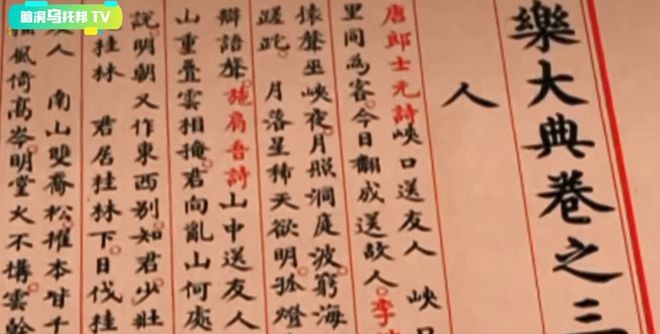 脑洞乌托邦 TV
樂大典卷之三
人
唐郎士元詩峽口送友人 峽口
里同為客今日翻成送故人李
猿聲巫峽夜月照洞庭波窮海
蹉跎 月落星稀天欲明孤燈
辯語聲施肩吾詩山中送友人
山重疊雲相掩君向亂山何處
說明朝又作東西別知君少壯
桂林 君居桂林下日伐桂
友人 南山雙喬松擢本皆千
風倚高岑明堂久不構雲幹